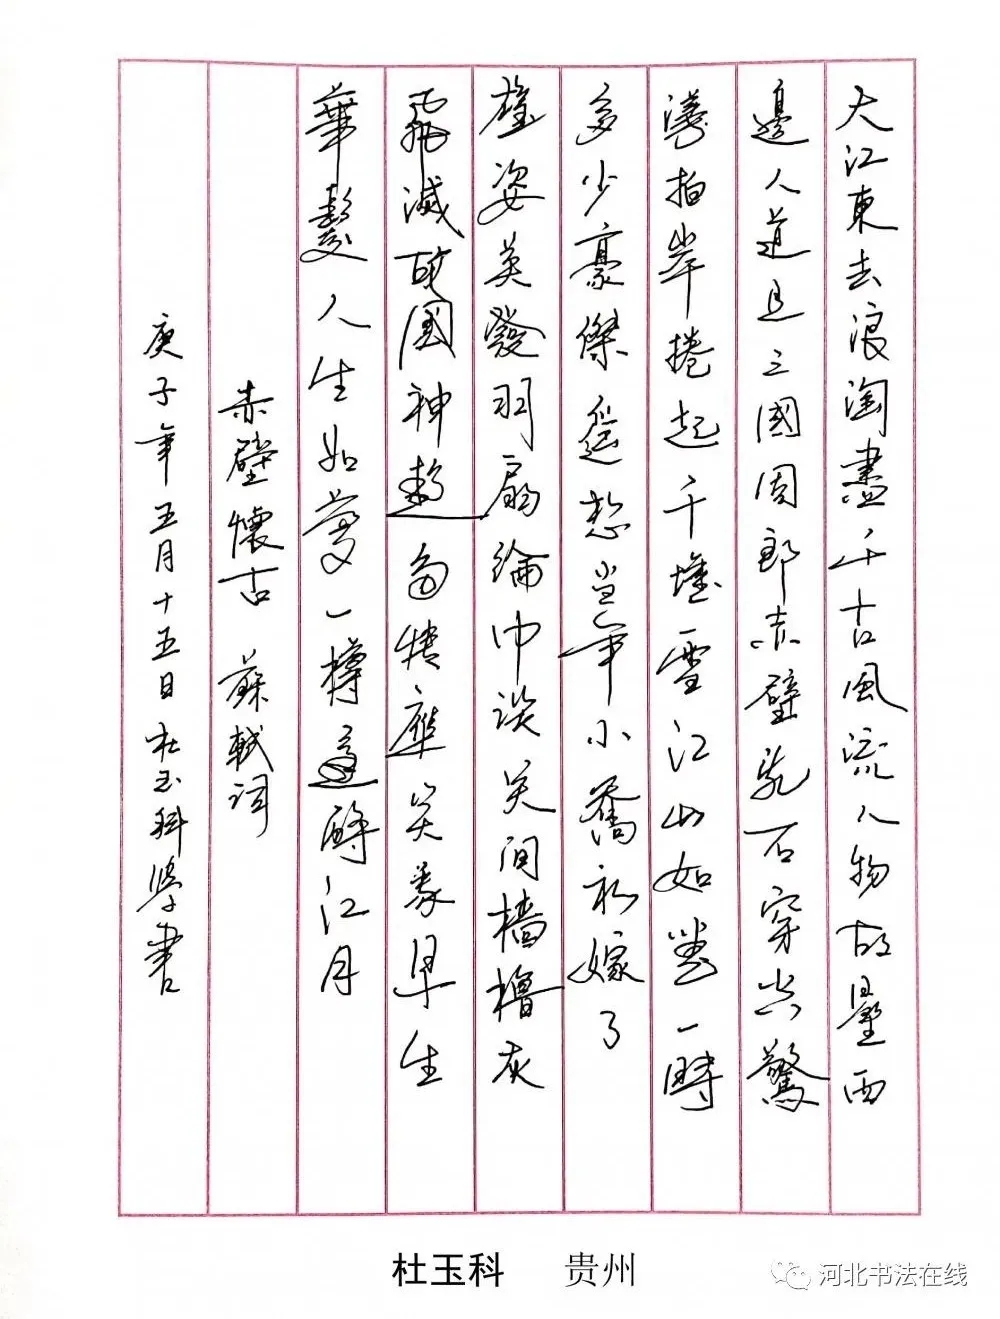 大江東去浪淘盡千古風流人物故壘西
邊人道是三國周郎赤壁亂石穿空驚
濤拍岸捲起千堆雪江山如畫一時
多少豪傑遙想当年小喬初嫁了
雄姿英發羽扇綸巾談笑間檣櫓灰
飛滅故國神遊多情應笑我早生
華髮人生如夢一樽還酹江月
赤壁懷古 蘇軾詞
庚子年五月十五日杜玉科學書
杜玉科 贵州
河北书法在线